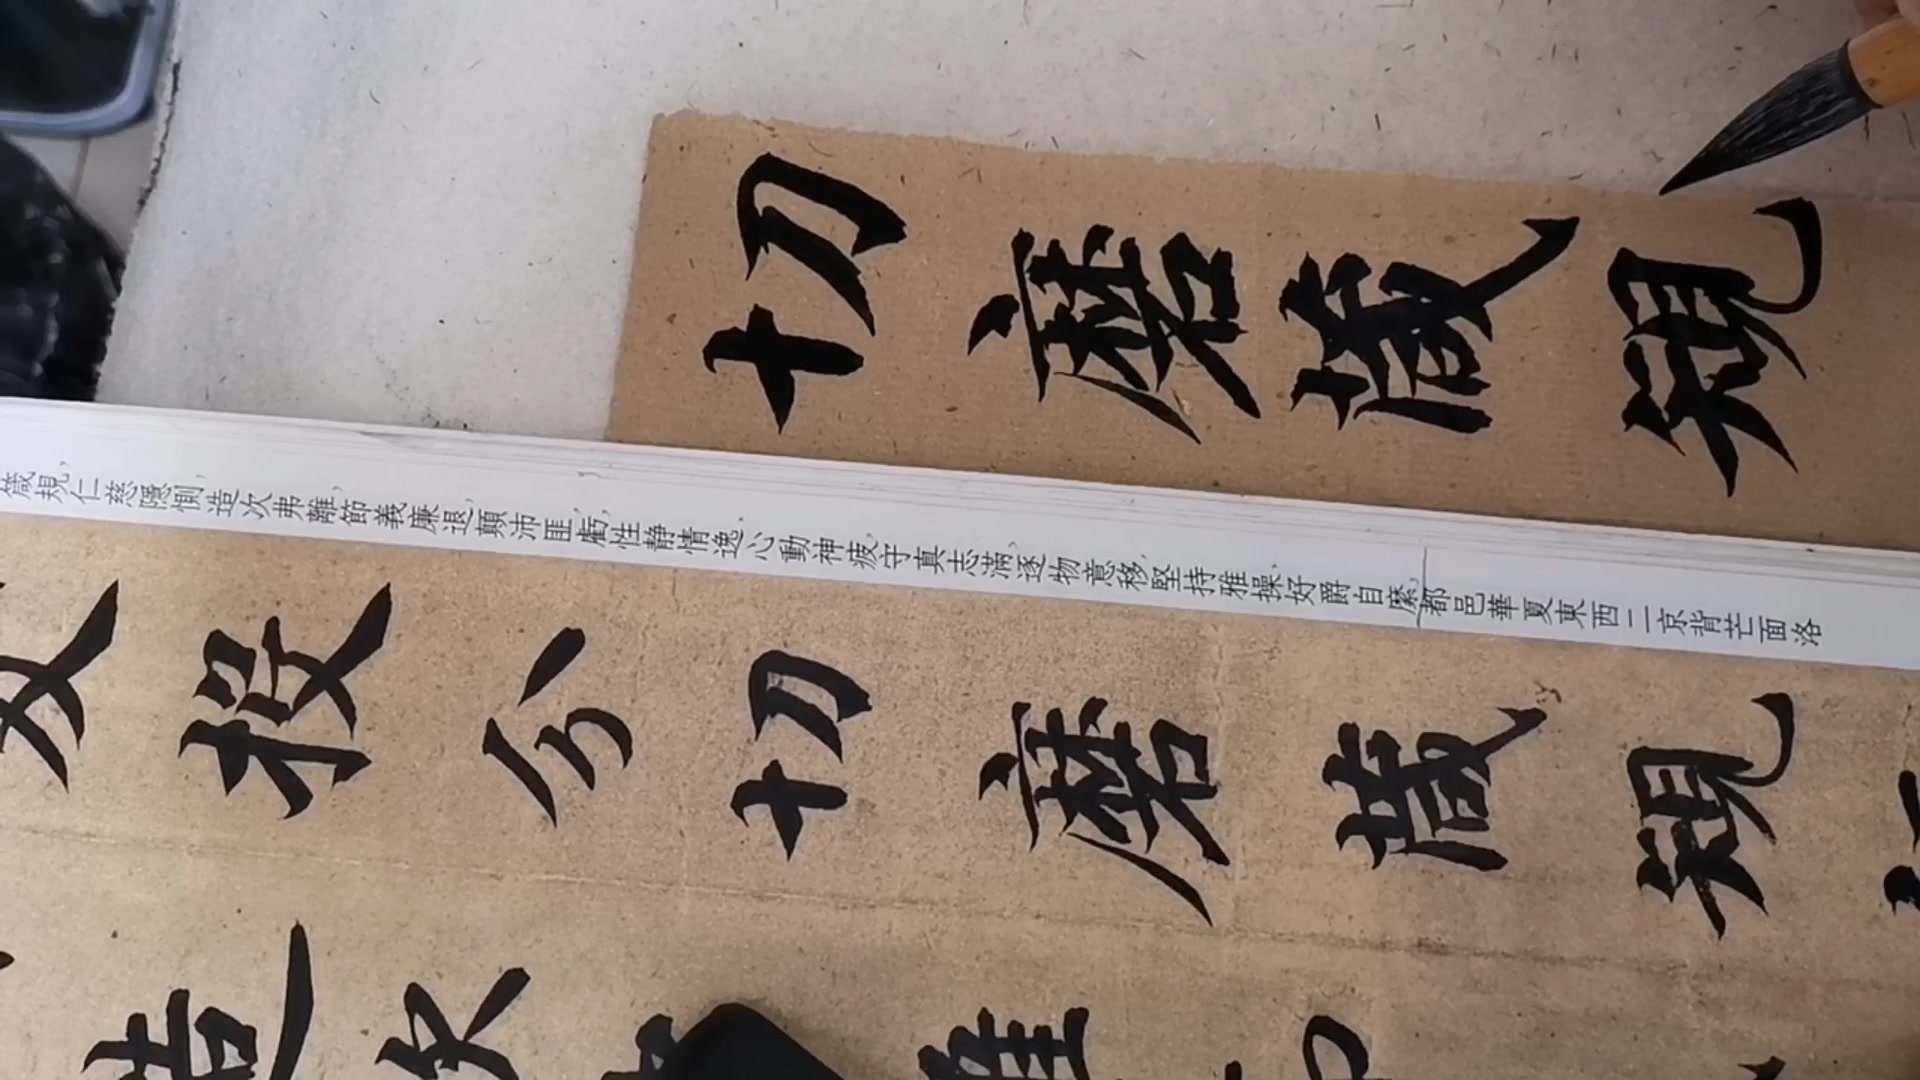 切磨箴規
箴規,仁慈隱惻,造次弗離,節義廉退,顛沛匪虧,性静情逸,心動神疲,守真志滿,逐物意移,堅持雅操,好爵自縻,都邑華夏東西二京背芒面洛
友投分切磨箴規
造次離